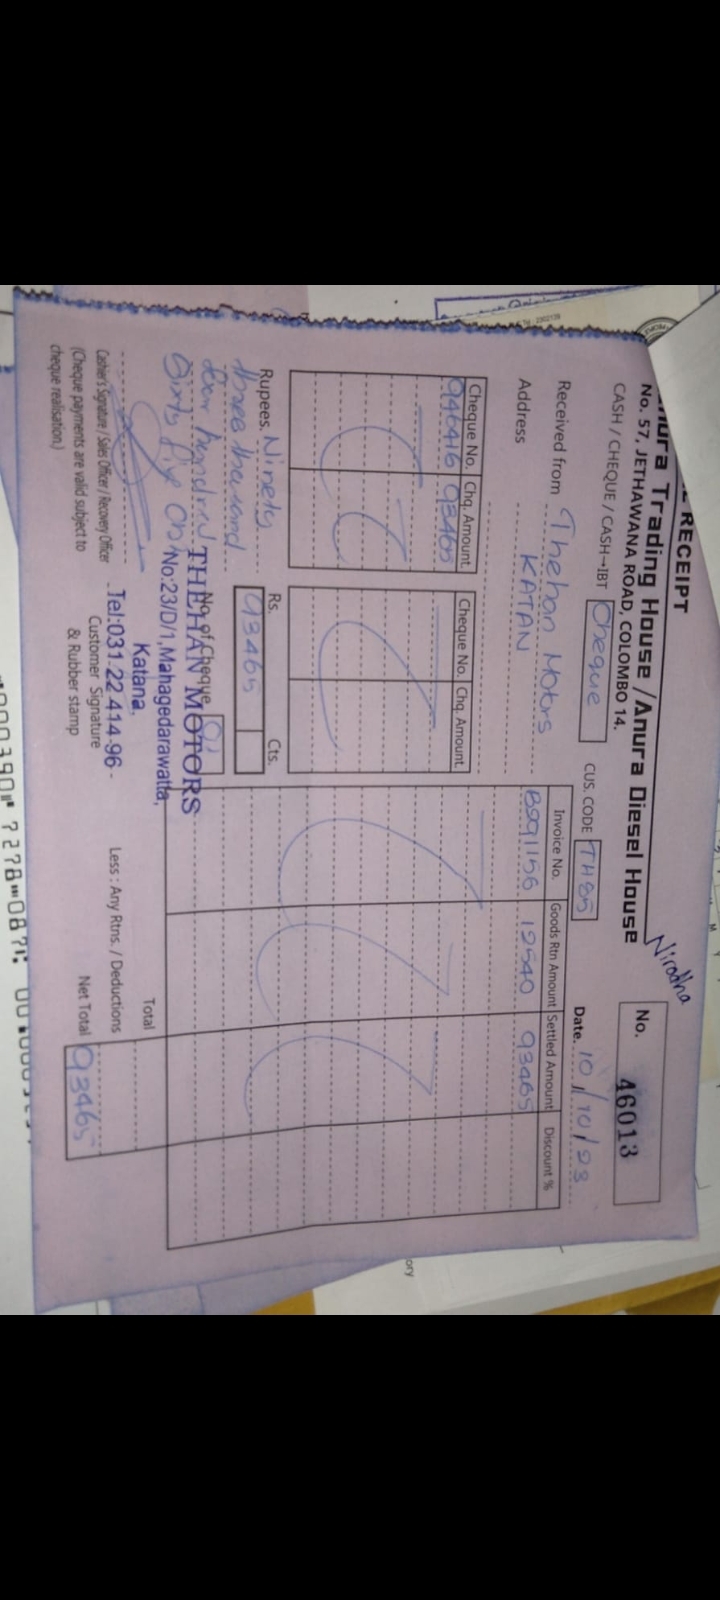 RECEIPT
Anura Trading House / Anura Diesel House
No. 57, JETHAWANA ROAD, COLOMBO 14.
Niradha
No. 46013
CASH / CHEQUE / CASH→IBT Cheque
CUS. CODE TH85
Date. 10/10/23
Received from Thehan Motors
Address KATAN
Cheque No. Chq. Amount.
946416 93465
Cheque No. Chq. Amount.
Invoice No. Goods Rtn Amount Settled Amount Discount %
B991156 12540 93465
Rupees. Ninety
three thousand
four hundred
Sixty five only
Rs. Cts.
93465
No. of Cheque 01
THEHAN MOTORS
No:23/D/1,Mahagedarawatta,
Katana.
Tel:031.22 414-96 -
Cashier's Signature / Sales Officer / Recovery Officer
(Cheque payments are valid subject to
cheque realisation.)
Customer Signature
& Rubber stamp
Total
Less : Any Rtns. / Deductions
Net Total 93465